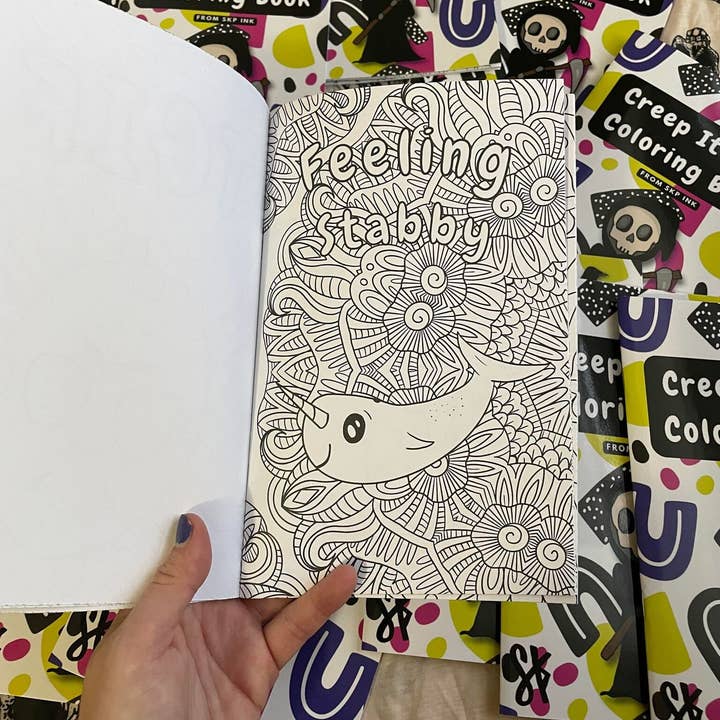 Coloring Book
FROM SKP INK
Feeling
Stabby
Creep It
Coloring B
FROM SKP INK
eep
lori
FROM
Cree
Colo
SK
SK